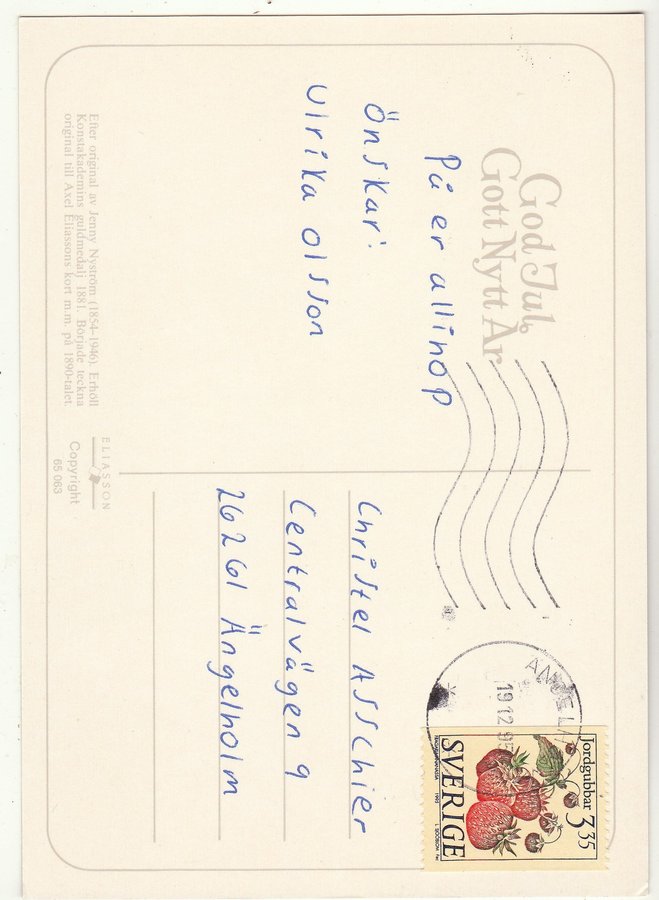 God Jul,
Gott Nytt År
På er allihop
Önskar:
Ulrika Olsson
Efter original av Jenny Nyström (1854–1946). Erhöll
Konstakademins guldmedalj 1881. Började teckna
original till Axel Eliassons kort m.m. på 1890-talet.
ELIASSON
Copyright
65 063
19 12 95
Jordgubbar 3.35
SVERIGE
1995
Christel Asschier
Centralvägen 9
26261 Ängelholm